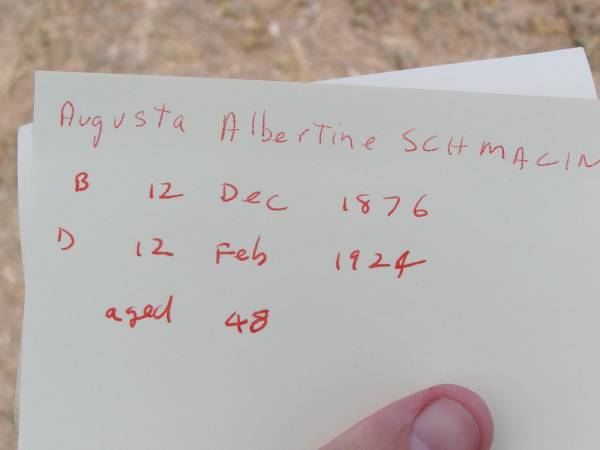 Augusta Albertine SCHMACIN
B 12 Dec 1876
D 12 Feb 1924
aged 48